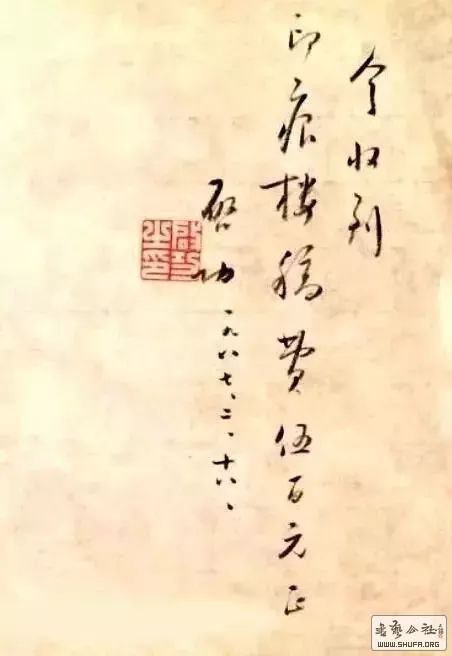 今收到
印痕楼稿费伍百元正
启功
一九八七、二、十六、
启功之印
書藝公社
WWW.SHUFA.ORG